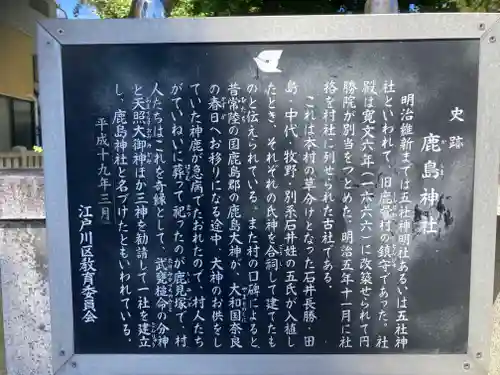 史跡
鹿島神社
かしま
明治維新までは五社神明社あるいは五社神
社といわれて、旧鹿骨村の鎮守であった。社
殿は寛文六年（一六六六）に改築せられて円
勝院が別当をつとめた。明治五年十一月に社
格を村社に列せられた古社である。
これは本村の草分けとなった石井長勝・田
島・中代・牧野・別系石井姓の五氏が入植し
たとき、それぞれの氏神を合祠して建てたも
のと伝えられている。また村の口碑によると、
昔常陸の国鹿島郡の鹿島大神が、大和国奈良
の春日へお移りになる途中、大神のお供をし
ていた神鹿が急病でたおれたので、村人たち
がていねいに葬って祀ったのが鹿見塚で、村
人たちはこれを奇縁として、武甕槌命の分神
と天照大御神ほか三神を勧請して一社を建立
し、鹿島神社と名づけたともいわれている。
平成十九年三月
江戸川区教育委員会